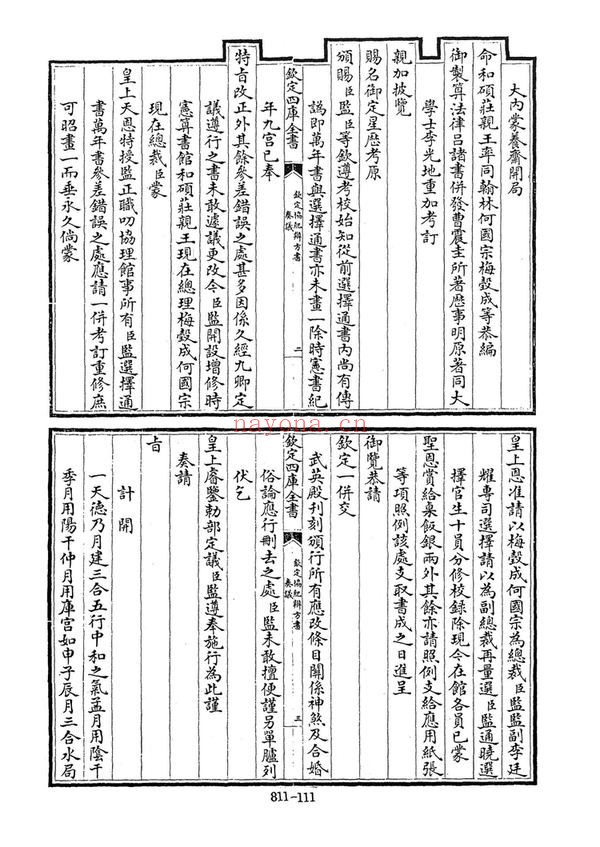 大內蒙養齋開局
命和碩莊親王率同翰林何國宗梅㲄成等恭編
御製算法律呂諸書併發曹震圭所著厯事明原著同大
學士李光地重加考訂
親加披覽
賜名御定星歷考原
頒賜臣監臣等欽遵考校始知從前選擇通書內尚有傳
譌即萬年書與選擇通書亦未畫一除時憲書紀
欽定四庫全書
欽定協紀辨方書
奏議
二
年九宮已奉
特旨改正外其餘參差錯誤之處甚多因係久經九卿定
議遵行之書未敢遽議更改今臣監開設增修時
憲算書館和碩莊親王現在總理梅㲄成何國宗
現在總裁臣蒙
皇上天恩特授監正職叨協理館事所有臣監選擇通
書萬年書參差錯誤之處應請一併考訂重修庶
可昭畫一而垂永久倘蒙
皇上恩准請以梅㲄成何國宗為總裁臣監監副李廷
耀專司選擇請以為副總裁再量選臣監通曉選
擇官生十員分修校録除現今在館各員已蒙
聖恩賞給桌飯銀兩外其餘亦請照例支給應用紙張
等項照例該處支取書成之日進呈
御覽恭請
欽定一併交
武英殿刊刻頒行所有應改條目闗係神煞及合婚
欽定四庫全書
欽定協紀辨方書
奏議
三
俗論應行刪去之處臣監未敢擅便謹另單臚列
伏乞
皇上睿鑒勅部定議臣監遵奉施行為此謹
奏請
旨
計開
一天德乃月建三合五行中和之氣孟月用陰干
季月用陽干仲月用庫宮如申子辰月三合水局
811-111
nayona.cn